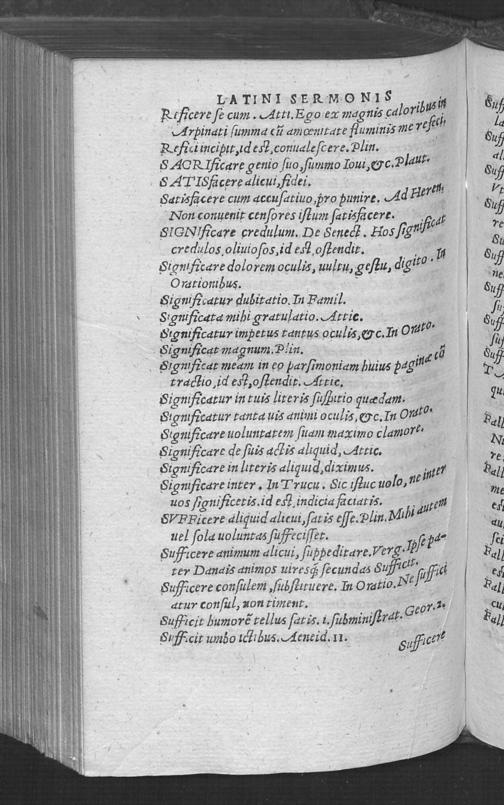 LATINI SERMONIS
Reficere se cum. Atti. Ego ex magnis caloribus in
Arpinati summa cũ amœnitate fluminis me refeci.
Refici incipit, id est, conualescere. Plin.
SACRIficare genio suo, summo Ioui, &c. Plaut.
SATISfacere alicui, fidei.
Satisfacere cum accusatiuo, pro punire. Ad Heren.
Non conuenit censores istum satisfacere.
SIGNIficare credulum. De Senect. Hos significat
credulos, obliuiosos, id est, ostendit.
Significare dolorem oculis, uultu, gestu, digito. In
Orationibus.
Significatur dubitatio. In Famil.
Significata mihi gratulatio. Attic.
Significatur impetus tantus oculis, &c. In Orato.
Significat magnum. Plin.
Significat meam in eo parsimoniam huius paginæ cõ
tractio, id est, ostendit. Attic.
Significatur in tuis literis suspitio quædam.
Significatur tanta uis animi oculis, &c. In Orato.
Significare uoluntatem suam maximo clamore.
Significare de suis actis aliquid, Attic.
Significare in literis aliquid, diximus.
Significare inter. In Trucu. Sic istuc uolo, ne inter
uos significetis. id est, indicia faciatis.
SVFFicere aliquid alicui, satis esse. Plin. Mihi autem
uel sola uoluntas suffecisset.
Sufficere animum alicui, suppeditare. Verg. Ipse pa-
ter Danais animos uiresq́; secundas Sufficit.
Sufficere consulem, substituere. In Oratio. Ne suffici
atur consul, non timent.
Sufficit humorẽ tellus satis. i. subministrat. Geor. 2.
Sufficit umbo ictibus. Aeneid. 11.
Sufficere